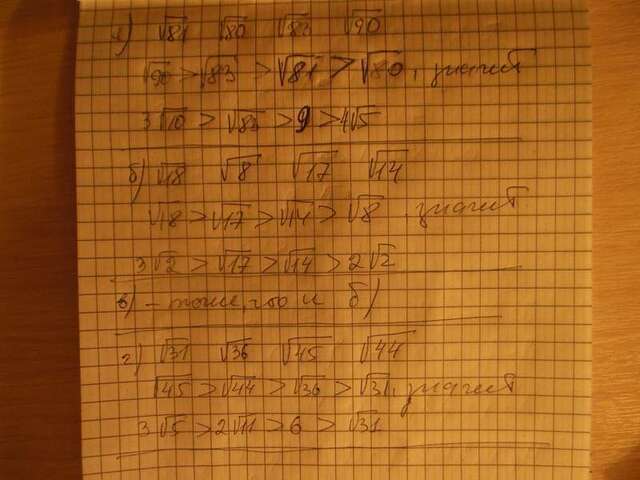 а) √81 √80 √83 √90
√90 > √83 > √81 > √80, значит
3√10 > √83 > 9 > 4√5
б) √18 √8 √17 √14
√18 > √17 > √14 > √8, значит
3√2 > √17 > √14 > 2√2
в) - тоже, что и б)
г) √31 √36 √45 √44
√45 > √44 > √36 > √31, значит
3√5 > 2√11 > 6 > √31